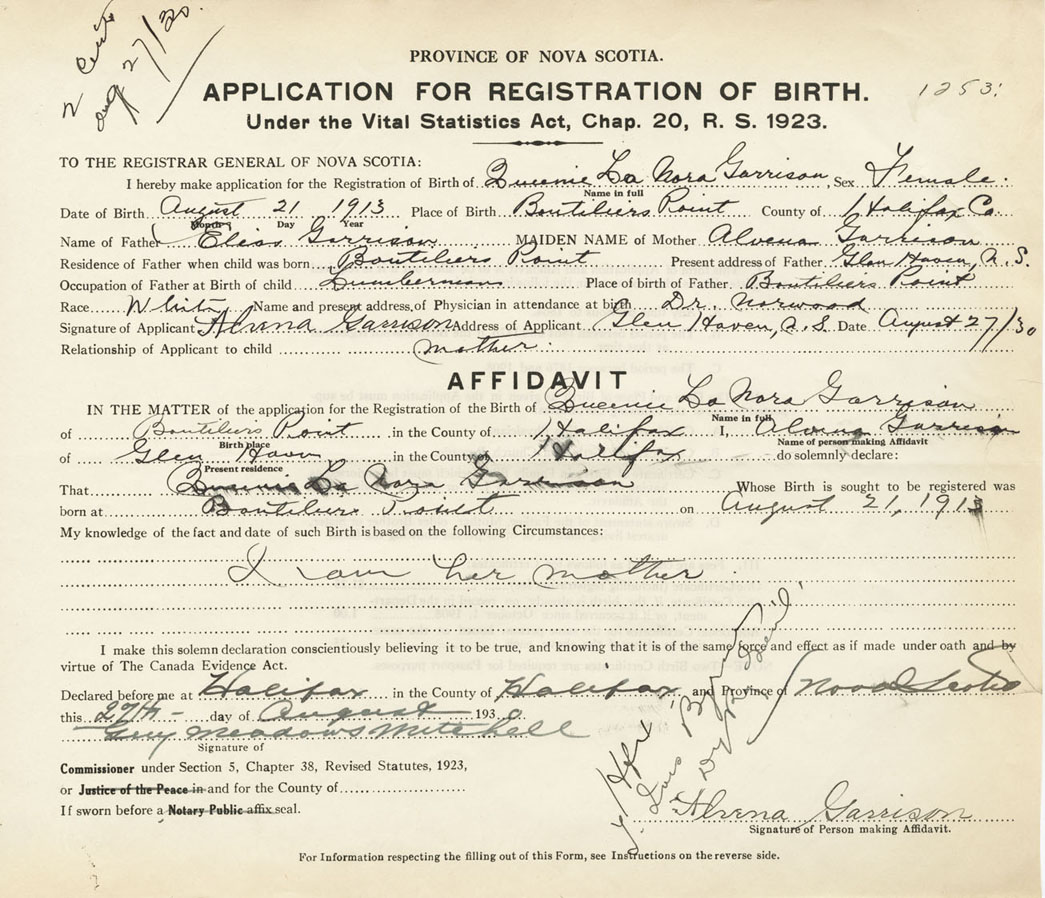 2 Certs
Aug 27/30.
PROVINCE OF NOVA SCOTIA.
APPLICATION FOR REGISTRATION OF BIRTH.
1253
Under the Vital Statistics Act, Chap. 20, R. S. 1923.
TO THE REGISTRAR GENERAL OF NOVA SCOTIA:
I hereby make application for the Registration of Birth of Queenie La Nora Garrison, Sex Female.
Name in full
Date of Birth August 21 1913 Place of Birth Boutiliers Point County of Halifax Co.
Month Day Year
Name of Father Elias Garrison MAIDEN NAME of Mother Alvena Garrison
Residence of Father when child was born Boutiliers Point Present address of Father Glen Haven, N. S.
Occupation of Father at Birth of child Lumberman Place of birth of Father Boutiliers Point
Race White Name and present address of Physician in attendance at birth Dr. Norwood
Signature of Applicant Alvena Garrison Address of Applicant Glen Haven, N. S. Date August 27/30
Relationship of Applicant to child mother.
AFFIDAVIT
IN THE MATTER of the application for the Registration of the Birth of Queenie La Nora Garrison
Name in full
of Boutiliers Point in the County of Halifax I, Alvena Garrison
Birth place Name of person making Affidavit
of Glen Haven in the County of Halifax do solemnly declare:
Present residence
That Queenie La Nora Garrison Whose Birth is sought to be registered was
born at Boutiliers Point on August 21, 1913
My knowledge of the fact and date of such Birth is based on the following Circumstances:
I am her mother
I make this solemn declaration conscientiously believing it to be true, and knowing that it is of the same force and effect as if made under oath and by
virtue of The Canada Evidence Act.
Declared before me at Halifax in the County of Halifax and Province of Nova Scotia
this 27th day of August 1930
Guy Meadows Mitchell
Signature of
Commissioner under Section 5, Chapter 38, Revised Statutes, 1923,
or Justice of the Peace in and for the County of
If sworn before a Notary Public affix seal.
Alvena Garrison
Signature of Person making Affidavit.
For Information respecting the filling out of this Form, see Instructions on the reverse side.